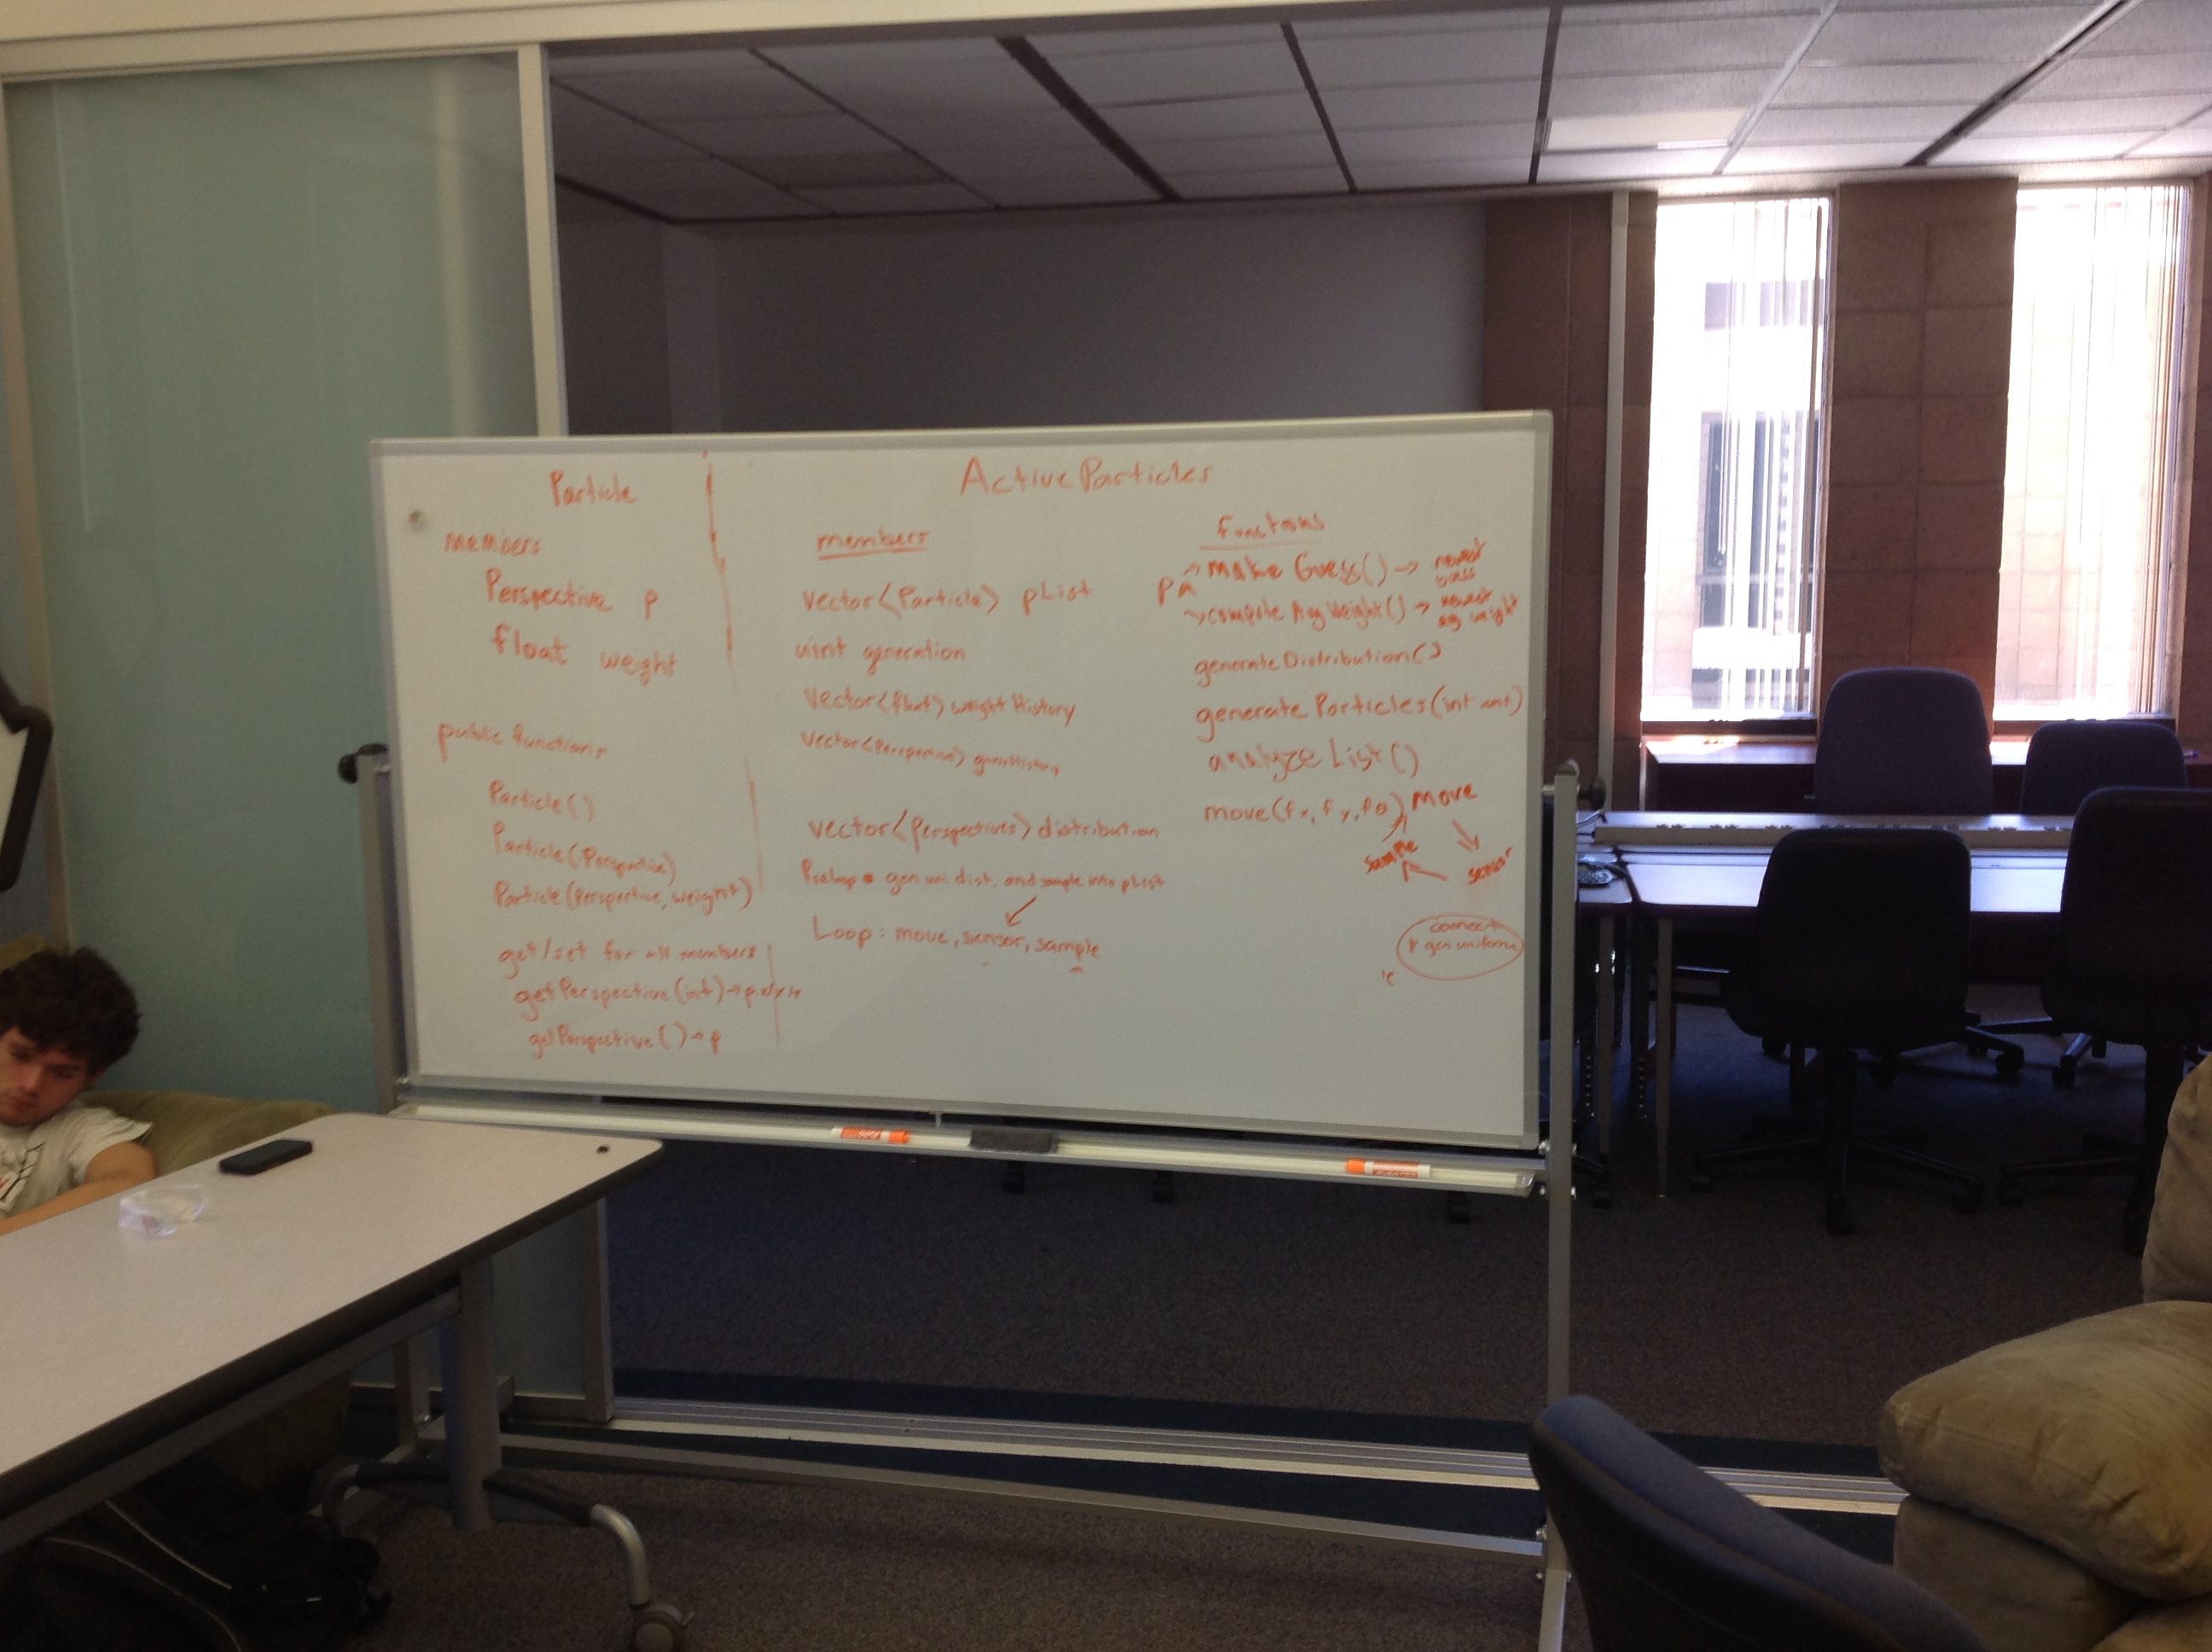 Particle
members
Perspective p
float weight
public functions
Particle()
Particle(Perspective)
Particle(Perspective, weight)
get/set for all members
getPerspective(int)→p.x/y/r
getPerspective()→p
ActiveParticles
members
vector<Particle> pList
uint generation
vector<float> weightHistory
vector<Perspective> guessHistory
vector<Perspectives> distribution
gen uni dist. and sample into pList
Loop: move, sensor, sample
functions
make Guess() → newest
compute Avg Weight() → newest
weight
generateDistribution()
generateParticles(int amt)
analyze List()
move(fx, fy, fθ)
move
sensor
sample
connect
gen uniform